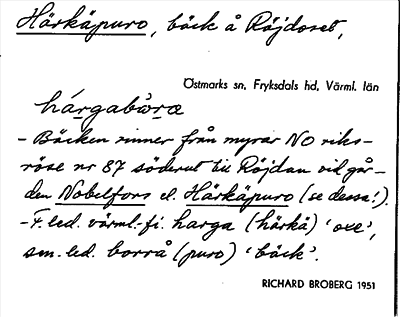 Härkäpuro, bäck å Röjdoset,
Östmarks sn, Fryksdals hd, Värml. län
hárgabòræ
- Bäcken rinner från myrar NO riks-
röse nr 87 söderut till Röjdan vid går-
den Nobelfors el. Härkäpuro (se dessa!).
- F. led. värml.-fi. harga (härkä) 'oxe',
sen. led. borrå (puro) 'bäck'.
RICHARD BROBERG 1951